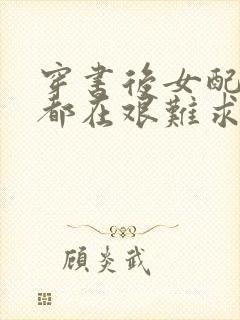 穿書後女配
都在艱難求
顧炎武